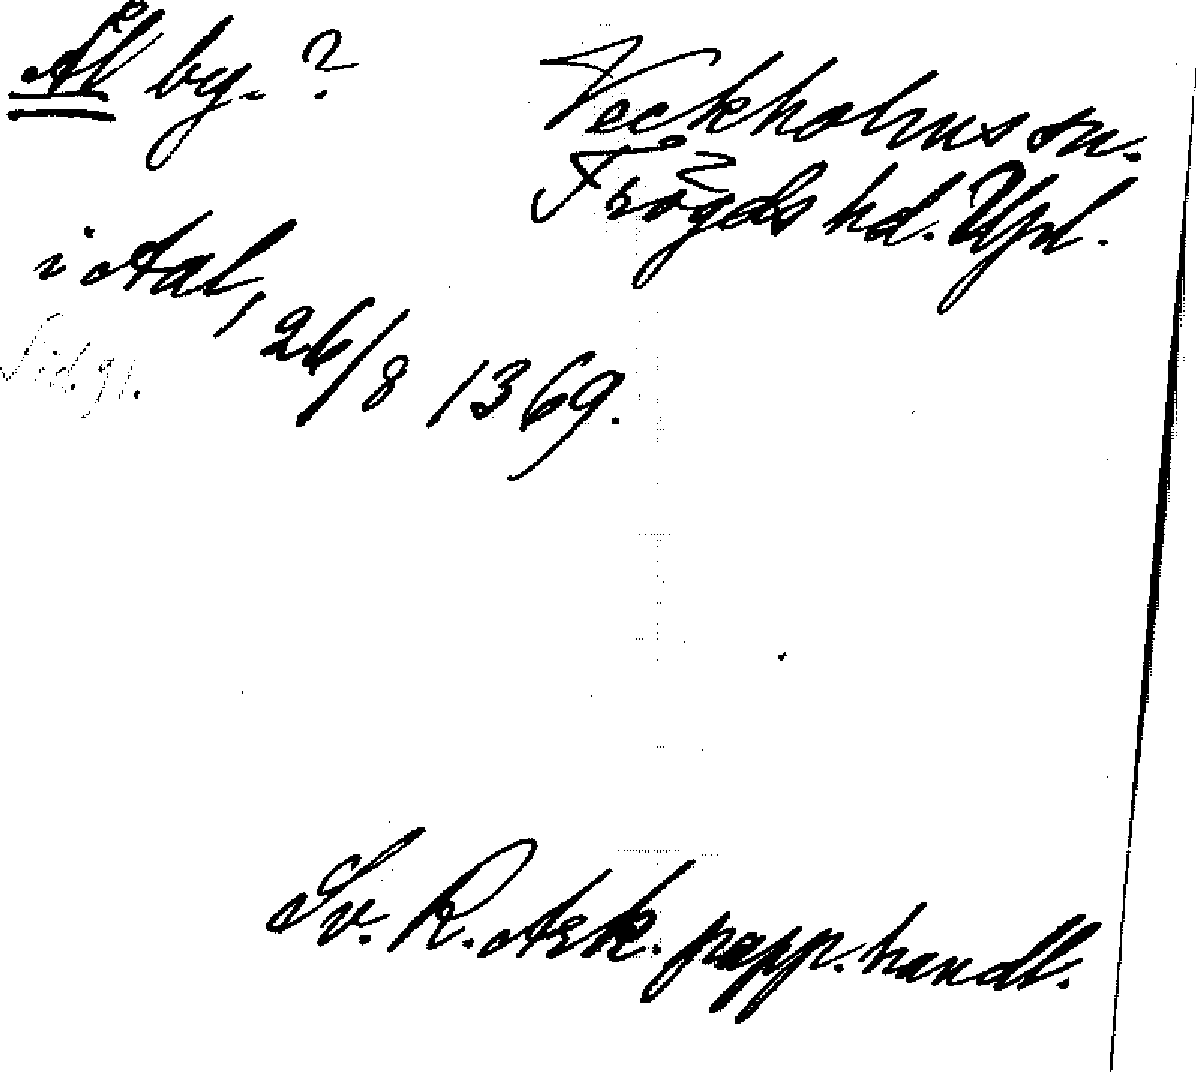 Ål by. ?
Veckholms sn.
Trögds hd. Upl.
i Aal, 26/8 1369.
Sid. 91.
Sv. R. Ark. papp. handl.